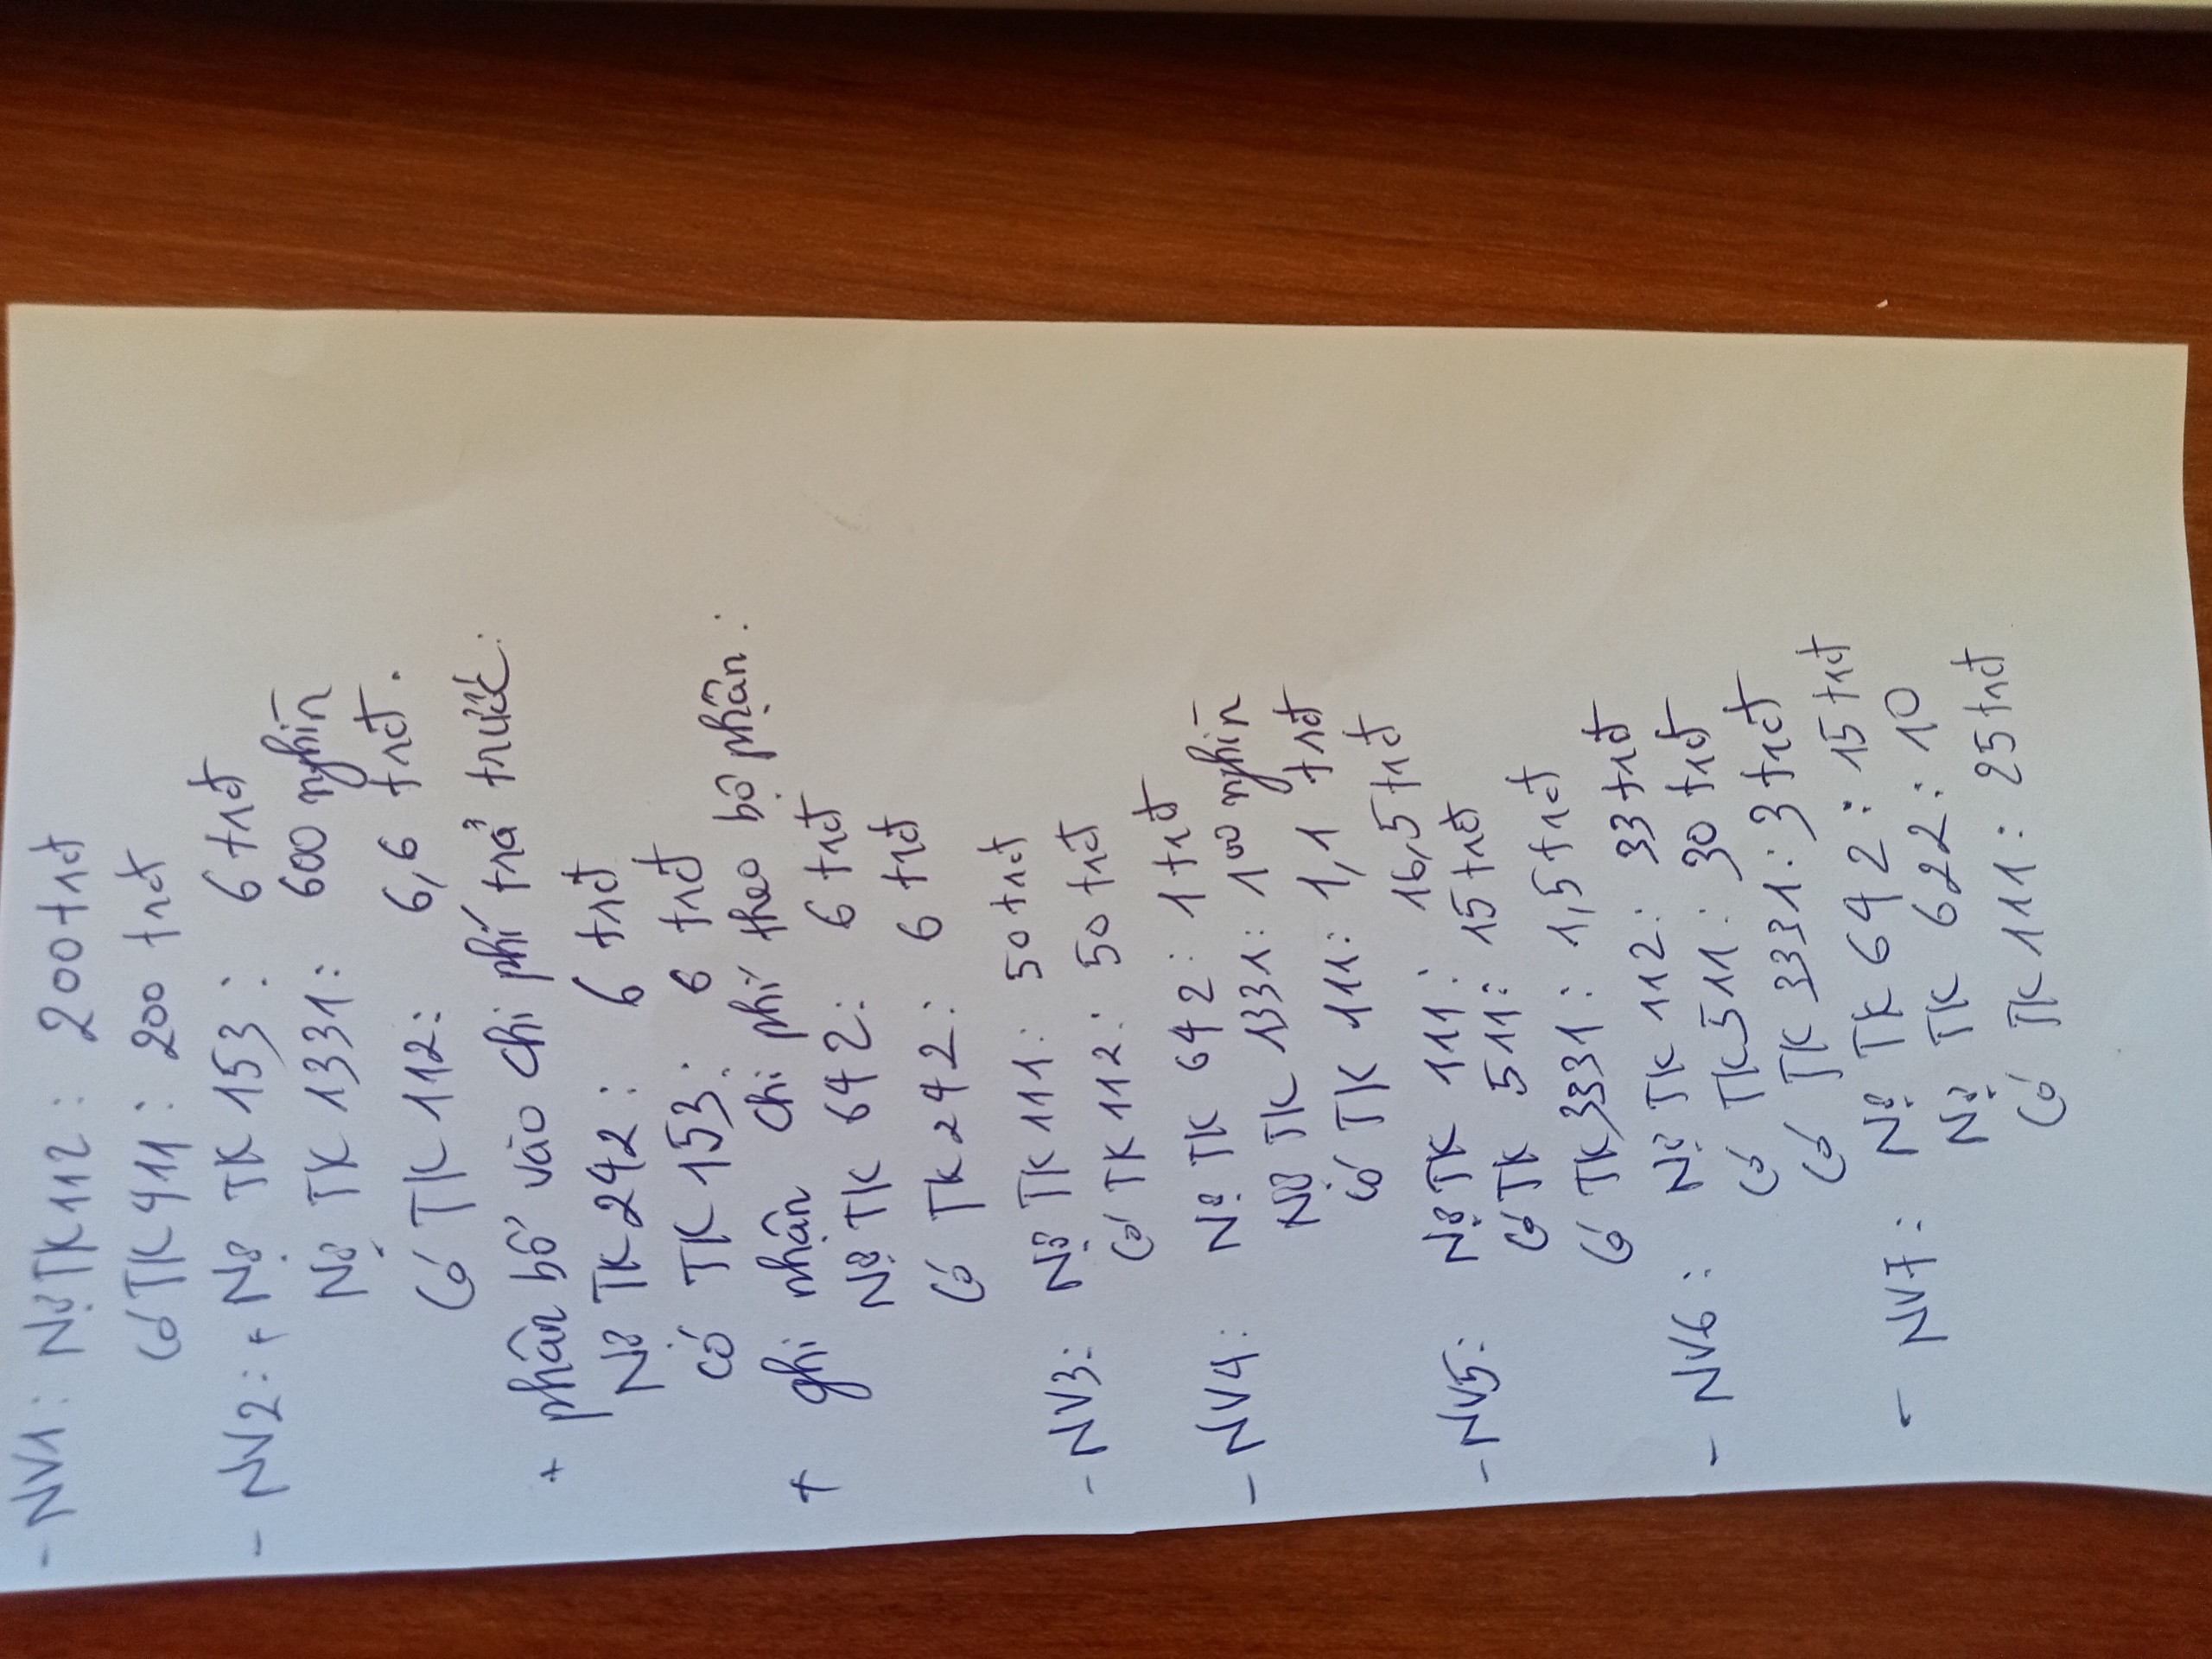 - NV1: Nợ TK 112: 200 trđ
Có TK 411: 200 trđ
- NV2: + Nợ TK 153: 6 trđ
Nợ TK 1331: 600 nghìn
Có TK 112: 6,6 trđ.
+ phân bổ vào chi phí trả trước:
Nợ TK 242: 6 trđ
Có TK 153: 6 trđ
+ ghi nhận chi phí theo bộ phận:
Nợ TK 642: 6 trđ
Có TK 242: 6 trđ
- NV3: Nợ TK 111: 50 trđ
Có TK 112: 50 trđ
- NV4: Nợ TK 642: 1 trđ
Nợ TK 1331: 100 nghìn
Có TK 111: 1,1 trđ
- NV5: Nợ TK 111: 16,5 trđ
Có TK 511: 15 trđ
Có TK 3331: 1,5 trđ
- NV6: Nợ TK 112: 33 trđ
Có TK 511: 30 trđ
Có TK 3331: 3 trđ
- NV7: Nợ TK 642: 15 trđ
Nợ TK 622: 10
Có TK 111: 25 trđ